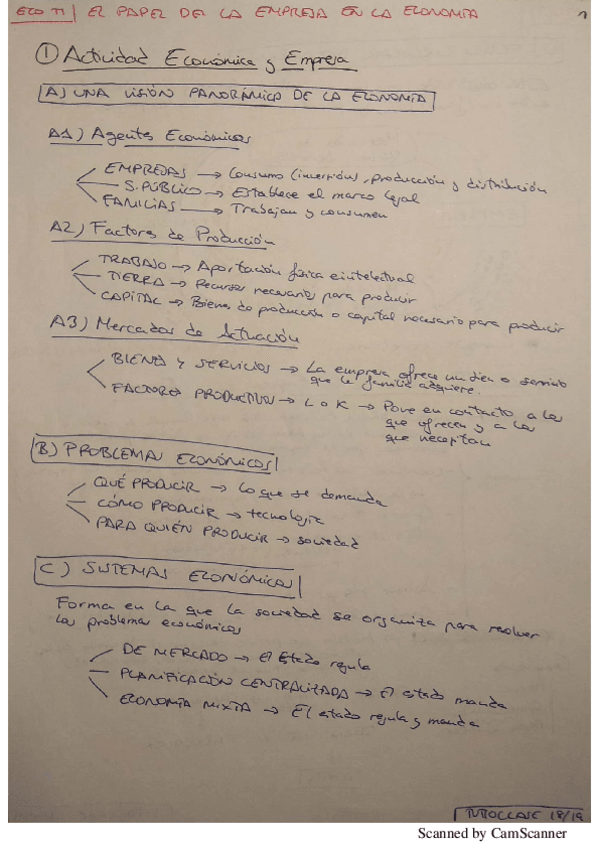 ECO T1 | EL PAPEL DE LA EMPRESA EN LA ECONOMÍA 1
① Actividad Económica y Empresa
A) UNA VISIÓN PANORÁMICA DE LA ECONOMÍA
A1) Agentes Económicos
EMPRESAS → Consumo (inversión), producción y distribución
S. PÚBLICO → Establece el marco legal
FAMILIAS → Trabajan y consumen
A2) Factores de Producción
TRABAJO → Aportación física e intelectual
TIERRA → Recursos necesarios para producir
CAPITAL → Bienes de producción o capital necesario para producir
A3) Mercados de Actuación
BIENES Y SERVICIOS → La empresa ofrece un bien o servicio
que la familia adquiere.
FACTORES PRODUCTIVOS → L o K → Pone en contacto a los
que ofrecen y a los
que necesitan
B) PROBLEMAS ECONÓMICOS
QUÉ PRODUCIR → Lo que se demanda
CÓMO PRODUCIR → tecnología
PARA QUIÉN PRODUCIR → sociedad
C) SISTEMAS ECONÓMICOS
Forma en la que la sociedad se organiza para resolver
los problemas económicos
DE MERCADO → El Estado regula
PLANIFICACIÓN CENTRALIZADA → El estado manda
ECONOMÍA MIXTA → El estado regula y manda
TUTOCLASE 18/19
Scanned by CamScanner